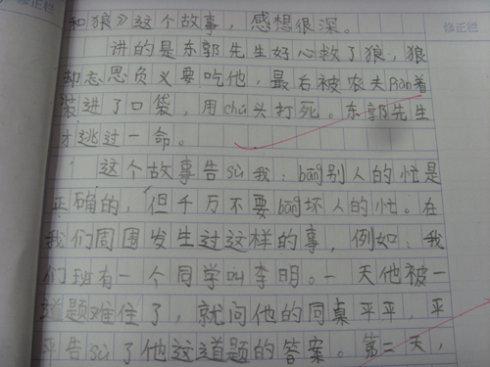 修正栏
和狼》这个故事，感想很深。
讲的是东郭先生好心救了狼，狼
却忘恩负义要吃他，最后被农夫pàn着
装进了口袋，用chú头打死。东郭先生
才逃过一命。
这个故事告sù我：bāng别人的忙是
正确的，但千万不要bāng坏人的忙。在
我们周围发生过这样的事，例如：我
们班有一个同学叫李明。一天他被一
道题难住了，就问他的同桌平平，平
平告sù了他这道题的答案。第二天，
修正栏